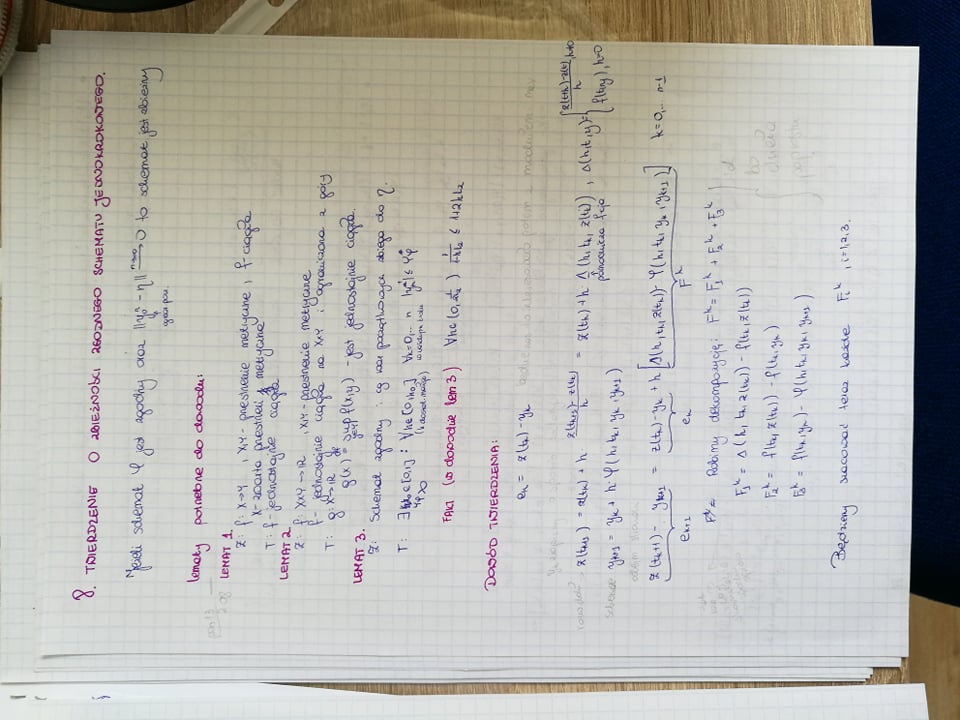 8. TWIERDZENIE O ZBIEŻNOŚCI ZGODNEGO SCHEMATU JEDNOKROKOWEGO.
Jeżeli schemat φ jest zgodny oraz ||y₀ⁿ - η|| →(n→∞) 0 to schemat jest zbieżny
Lematy potrzebne do dowodu:
LEMAT 1.
Z: f: X→Y , X,Y - przestrzenie metryczne , f - ciągła
X - zwarta przestrzeń metryczna
T: f - jednostajnie ciągła
LEMAT 2
Z: f: X×Y → ℝ , X,Y - przestrzenie metryczne
f - jednostajnie ciągła na X×Y i ograniczona z góry
T: g: X→ℝ
g(x) =df sup y∈Y f(x,y) - jest jednostajnie ciągła.
LEMAT 3.
Z: Schemat zgodny i cg war początkowych zbiega do η.
T: ∃ h₀∈[0,1] : ∀h∈[0,h₀] ∀k=0,... n
FAKT (w dowodzie lem 3)
DOWÓD TWIERDZENIA:
eₖ = z(tₖ) - yₖ
z(tₖ₊₁) = z(tₖ) + h (z(tₖ₊₁) - z(tₖ))/h = z(tₖ) + h Δ(h, tₖ, z(tₖ)) , Δ(h,t,y) = { (z(t+h) - z(t))/h , h≠0
pomocnicza fcja
f(t,y) , h=0
schemat yₖ₊₁ = yₖ + h·φ(h, tₖ, yₖ, yₖ₊₁)
z(tₖ+1) - yₖ₊₁ = z(tₖ) - yₖ + h [Δ(h, tₖ, z(tₖ)) - φ(h, tₖ, yₖ, yₖ₊₁)] k=0,... n-1
eₖ₊₁ eₖ Fᵏ
Robimy dekompozycję: Fᵏ = F₁ᵏ + F₂ᵏ + F₃ᵏ
F₁ᵏ = Δ(h, tₖ, z(tₖ)) - f(tₖ, z(tₖ))
F₂ᵏ = f(tₖ, z(tₖ)) - f(tₖ, yₖ)
F₃ᵏ = f(tₖ, yₖ) - φ(h, tₖ, yₖ, yₖ₊₁)
Będziemy szacować teraz każde Fᵢᵏ , i=1,2,3.